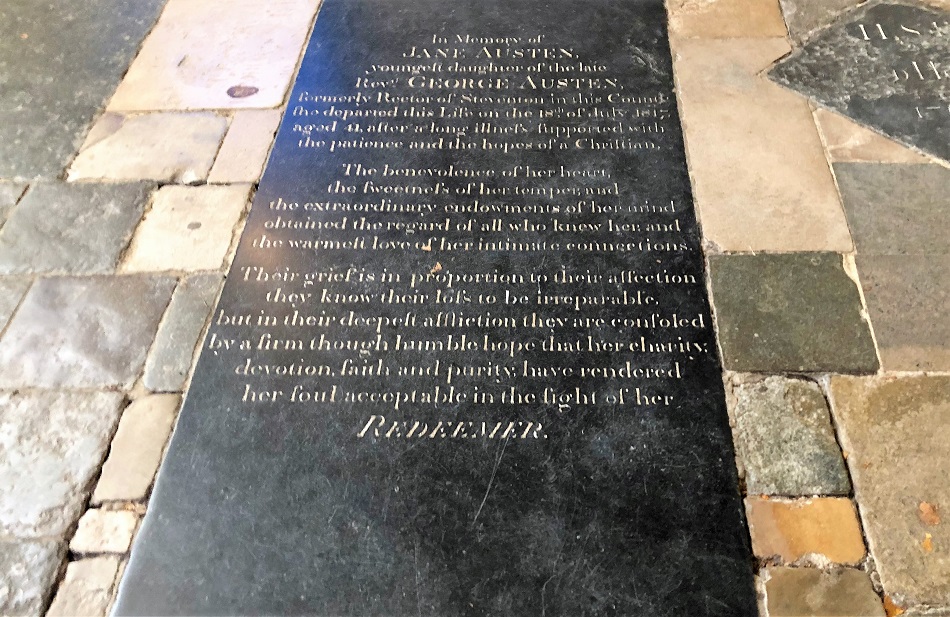 In Memory of
JANE AUSTEN,
youngeſt daughter of the late
Revd. GEORGE AUSTEN,
formerly Rector of Steventon in this County
ſhe departed this Life on the 18th. of July 1817,
aged 41, after a long illneſs ſupported with
the patience and the hopes of a Chriſtian.
The benevolence of her heart,
the ſweetneſs of her temper, and
the extraordinary endowments of her mind
obtained the regard of all who knew her, and
the warmeſt love of her intimate connections.
Their grief is in proportion to their affection
they know their loſs to be irreparable,
but in their deepeſt affliction they are conſoled
by a firm though humble hope that her charity,
devotion, faith and purity, have rendered
her ſoul acceptable in the ſight of her
REDEEMER.
H.S.